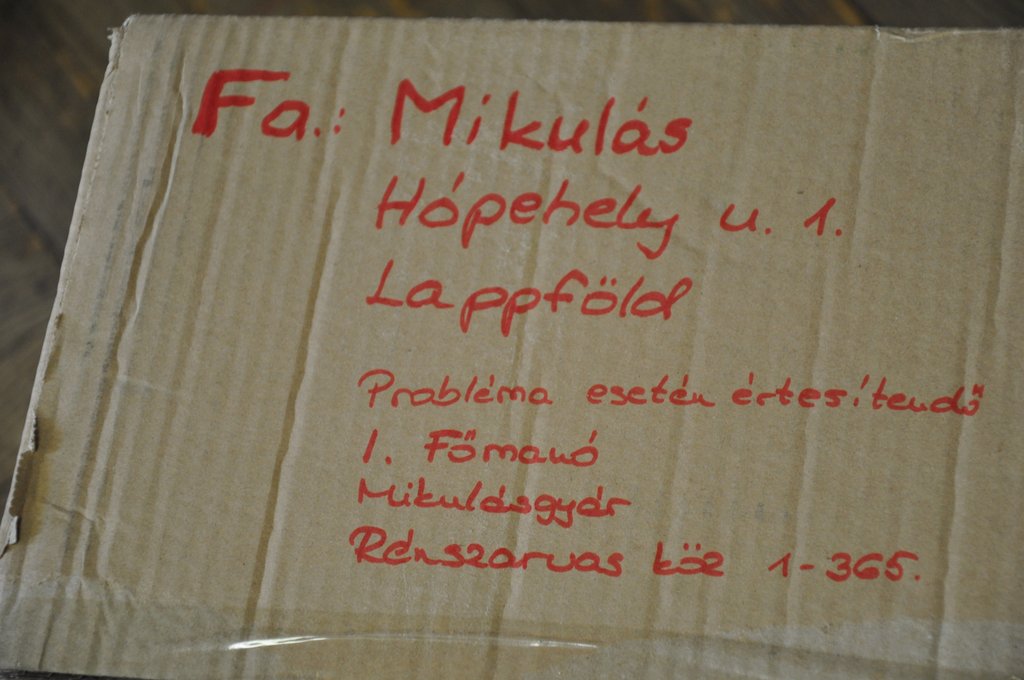 Fa.: Mikulás
Hópehely u. 1.
Lappföld
Probléma esetén értesítendő
1. Főmanó
Mikulásgyár
Rénszarvas köz 1-365.